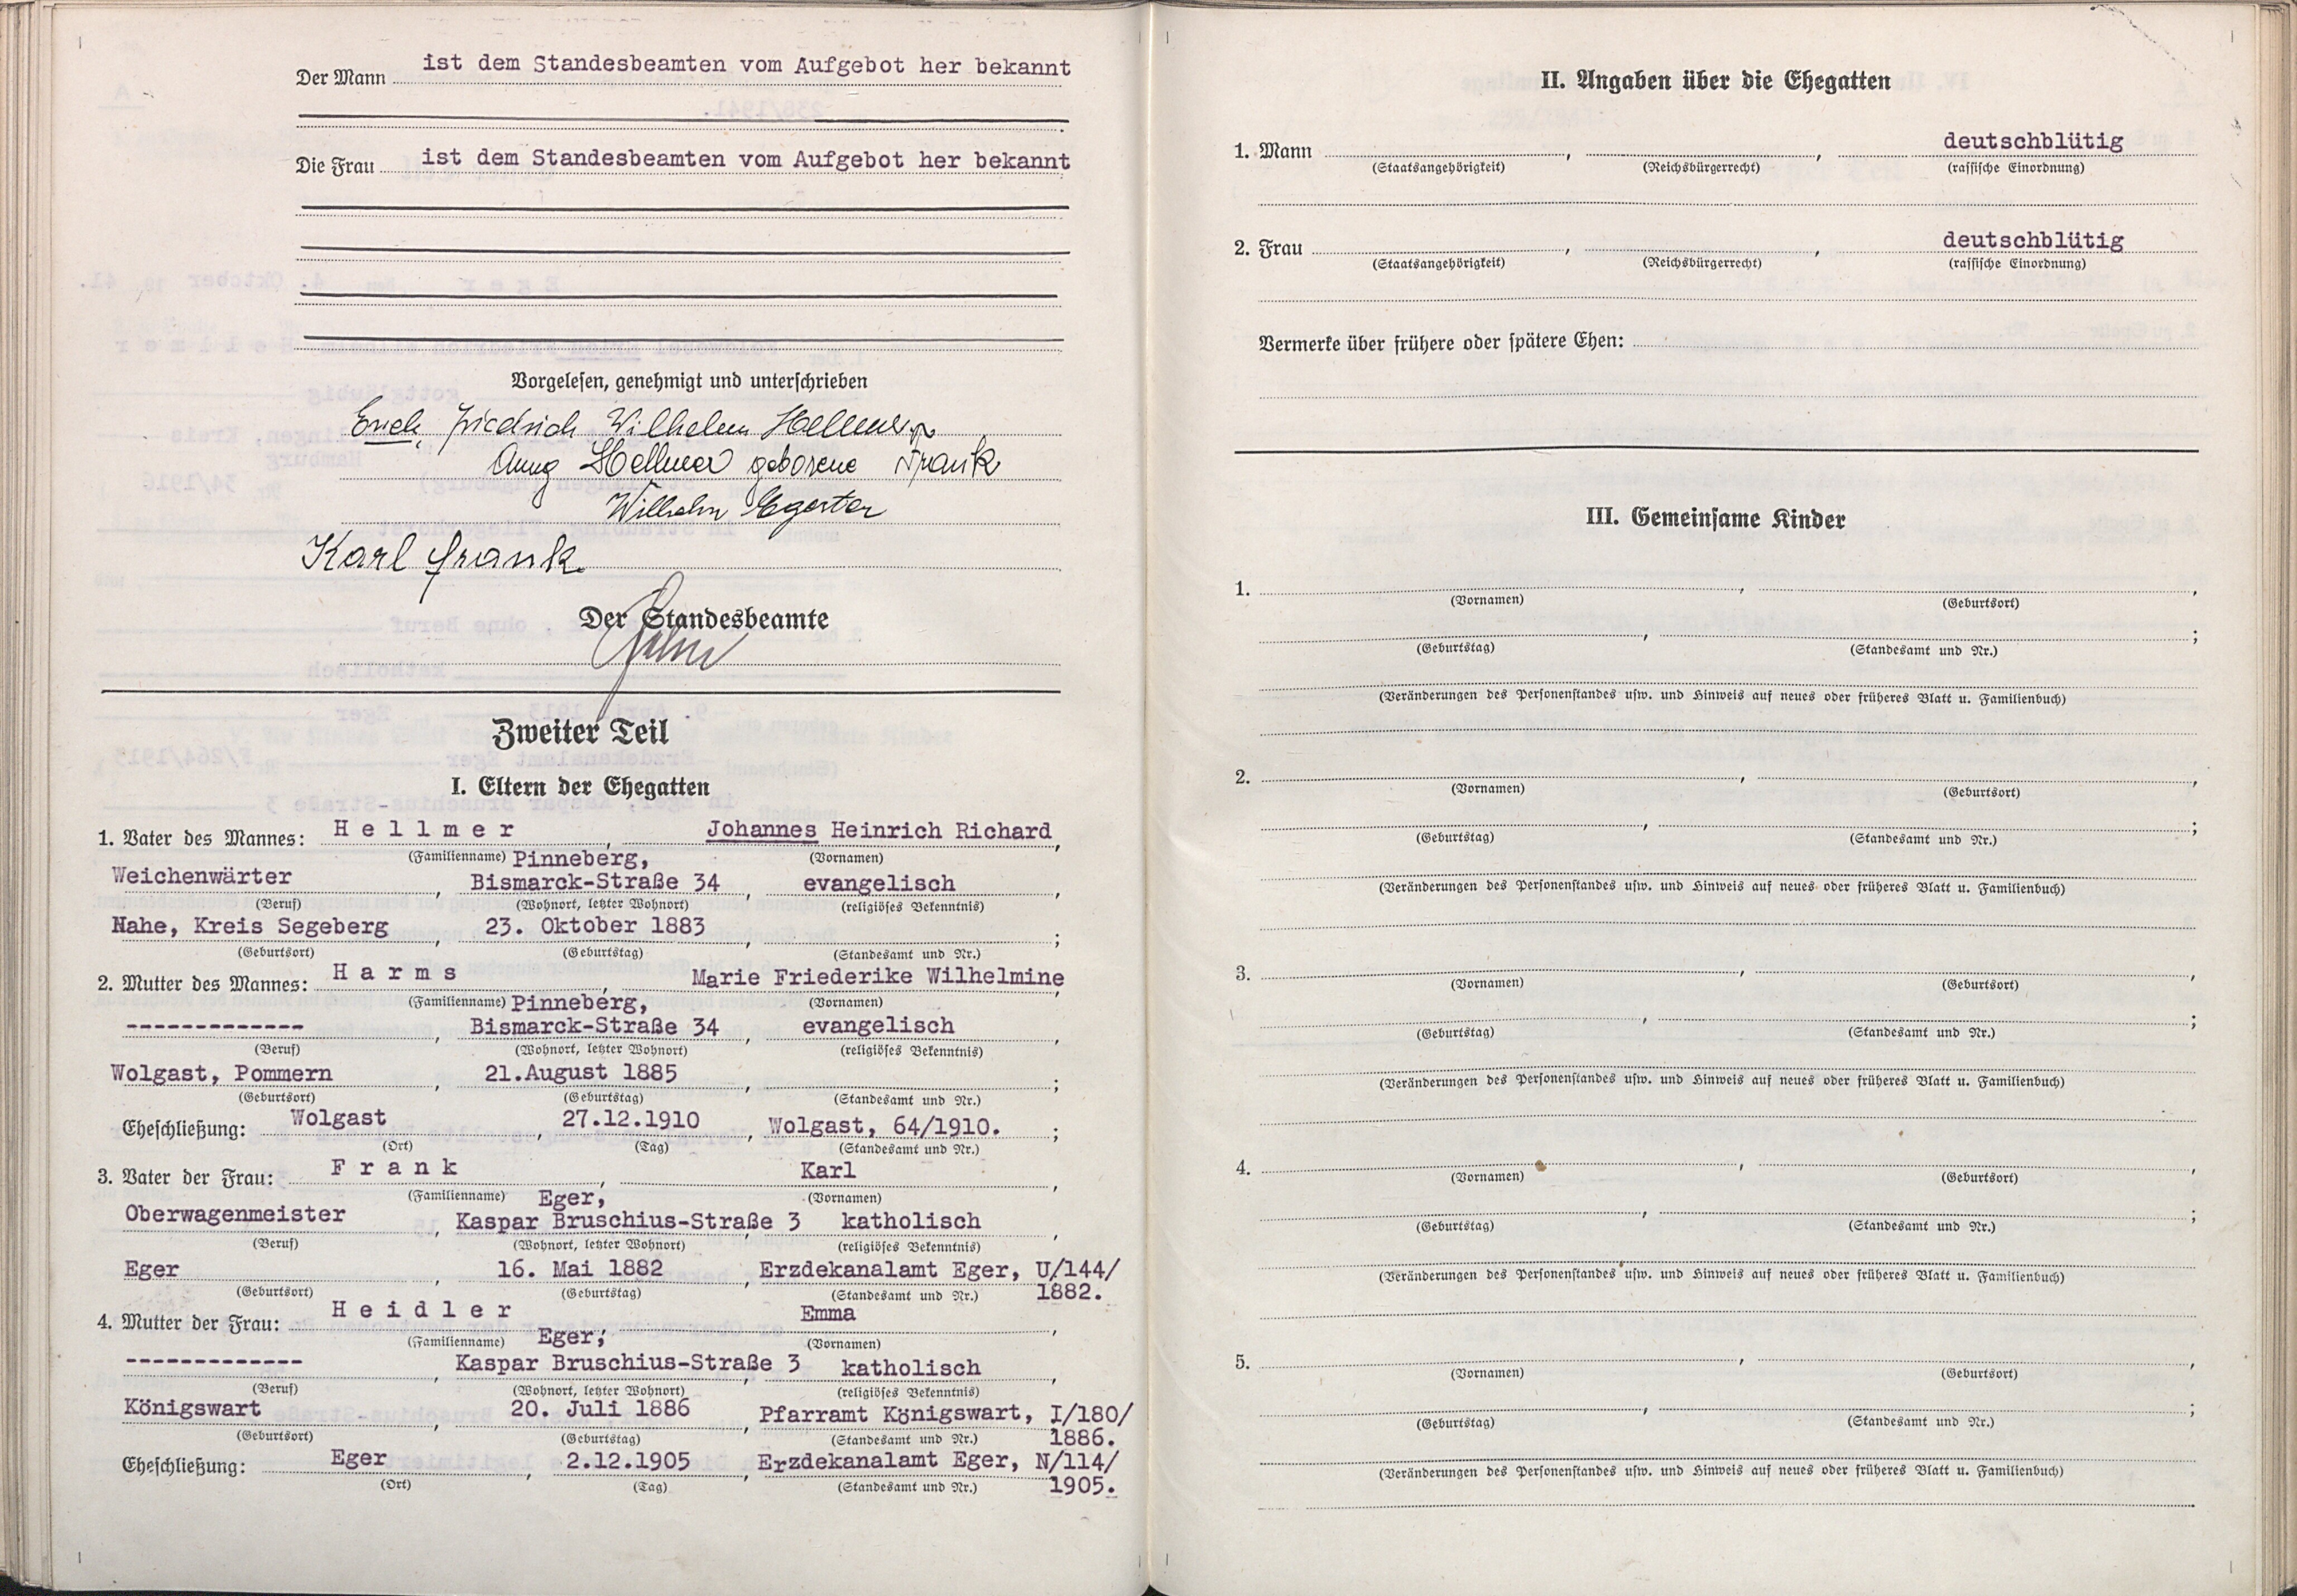 Der Mann ist dem Standesbeamten vom Aufgebot her bekannt
Die Frau ist dem Standesbeamten vom Aufgebot her bekannt
Vorgelesen, genehmigt und unterschrieben
Erich, Friedrich Wilhelm Hellmer
Anna Hellmer geborene Frank
Wilhelm Egerter
Karl Frank.
Der Standesbeamte
Zweiter Teil
I. Eltern der Ehegatten
1. Vater des Mannes: Hellmer, Johannes Heinrich Richard,
(Familienname) Pinneberg, (Vornamen)
Weichenwärter, Bismarck-Straße 34, evangelisch,
(Beruf) (Wohnort, letzter Wohnort) (religiöses Bekenntnis)
Nahe, Kreis Segeberg, 23. Oktober 1883, ;
(Geburtsort) (Geburtstag) (Standesamt und Nr.)
2. Mutter des Mannes: Harms, Marie Friederike Wilhelmine,
(Familienname) Pinneberg, (Vornamen)
-------------, Bismarck-Straße 34, evangelisch,
(Beruf) (Wohnort, letzter Wohnort) (religiöses Bekenntnis)
Wolgast, Pommern, 21.August 1885, ;
(Geburtsort) (Geburtstag) (Standesamt und Nr.)
Eheschließung: Wolgast, 27.12.1910, Wolgast, 64/1910. ;
(Ort) (Tag) (Standesamt und Nr.)
3. Vater der Frau: Frank, Karl,
(Familienname) Eger, (Vornamen)
Oberwagenmeister, Kaspar Bruschius-Straße 3, katholisch,
(Beruf) (Wohnort, letzter Wohnort) (religiöses Bekenntnis)
Eger, 16. Mai 1882, Erzdekanalamt Eger, U/144/
(Geburtsort) (Geburtstag) (Standesamt und Nr.) 1882.
4. Mutter der Frau: Heidler, Emma,
(Familienname) Eger, (Vornamen)
-------------, Kaspar Bruschius-Straße 3, katholisch,
(Beruf) (Wohnort, letzter Wohnort) (religiöses Bekenntnis)
Königswart, 20. Juli 1886, Pfarramt Königswart, I/180/
(Geburtsort) (Geburtstag) (Standesamt und Nr.) 1886.
Eheschließung: Eger, 2.12.1905, Erzdekanalamt Eger, N/114/
(Ort) (Tag) (Standesamt und Nr.) 1905.
II. Angaben über die Ehegatten
1. Mann , , deutschblütig
(Staatsangehörigkeit) (Reichsbürgerrecht) (rassische Einordnung)
2. Frau , , deutschblütig
(Staatsangehörigkeit) (Reichsbürgerrecht) (rassische Einordnung)
Vermerke über frühere oder spätere Ehen:
III. Gemeinsame Kinder
1. , ,
(Vornamen) (Geburtsort)
, ;
(Geburtstag) (Standesamt und Nr.)
(Veränderungen des Personenstandes usw. und Hinweis auf neues oder früheres Blatt u. Familienbuch)
2. , ,
(Vornamen) (Geburtsort)
, ;
(Geburtstag) (Standesamt und Nr.)
(Veränderungen des Personenstandes usw. und Hinweis auf neues oder früheres Blatt u. Familienbuch)
3. , ,
(Vornamen) (Geburtsort)
, ;
(Geburtstag) (Standesamt und Nr.)
(Veränderungen des Personenstandes usw. und Hinweis auf neues oder früheres Blatt u. Familienbuch)
4. , ,
(Vornamen) (Geburtsort)
, ;
(Geburtstag) (Standesamt und Nr.)
(Veränderungen des Personenstandes usw. und Hinweis auf neues oder früheres Blatt u. Familienbuch)
5. , ,
(Vornamen) (Geburtsort)
, ;
(Geburtstag) (Standesamt und Nr.)
(Veränderungen des Personenstandes usw. und Hinweis auf neues oder früheres Blatt u. Familienbuch)